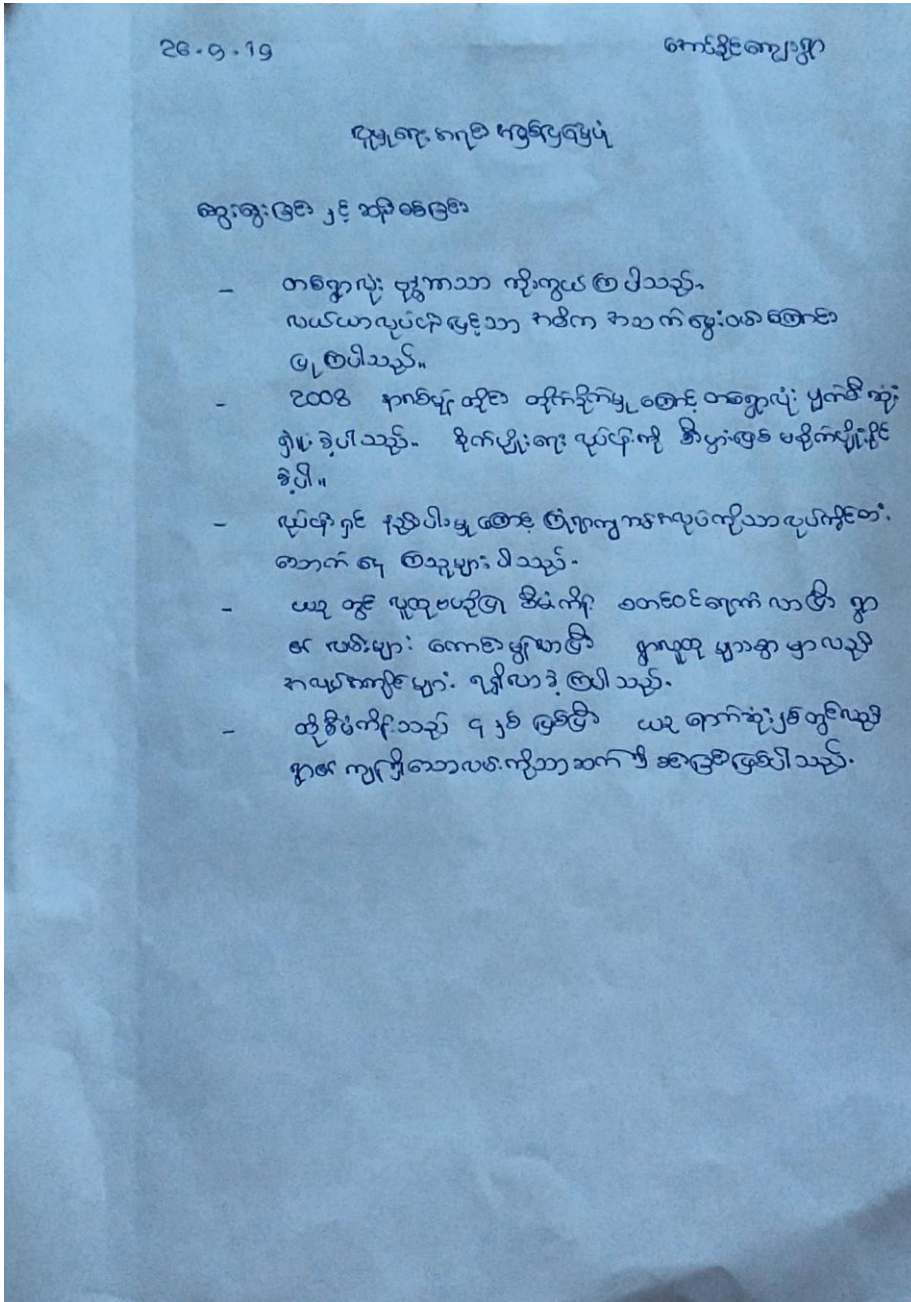 26.9.19
အောင်ခိုင်ကျေးရွာ
လူမှုရေး အရင်း အမြစ်ပြမြေပုံ
ဆွေးနွေးခြင်း နှင့် ဆန်းစစ်ခြင်း
- တစ်ရွာလုံး ဗုဒ္ဓဘာသာ ကိုးကွယ်ကြပါသည်။
လယ်ယာလုပ်ငန်းဖြင့်သာ အဓိက အသက်မွေးဝမ်းကြောင်း
ပြုကြပါသည်။
- 2008 နာဂစ်မုန်တိုင်း တိုက်ခိုက်မှုကြောင့် တစ်ရွာလုံး ပျက်စီးဆုံး
ရှုံးခဲ့ပါသည်။ စိုက်ပျိုးရေး လုပ်ငန်းကို စီးပွားဖြစ် မစိုက်ပျိုးနိုင်
ခဲ့ပါ။
- လုပ်ငန်းရှင် နည်းပါးမှုကြောင့် ကြုံရာကျပန်းအလုပ်ကိုသာ လုပ်ကိုင်စား
သောက်နေ ကြသူများ ပါသည်။
- ယခု တွင် လူထုဗဟိုပြု စီမံကိန်း စတင်ဝင်ရောက် လာပြီး ရွာ
၏ လမ်းများ ကောင်းမွန်လာပြီး ရွာလူထု များစွာ မှာလည်း
အလုပ်အကိုင်များ ရရှိလာခဲ့ကြပါသည်။
- ထိုစီမံကိန်းသည် ၄ နှစ် ဖြစ်ပြီး ယခု နောက်ဆုံးနှစ်တွင်လည်း
ရွာ၏ ကျန်ရှိသောလမ်းကိုသာ ဆက်၍ ခင်းခြင်းဖြစ်ပါသည်။